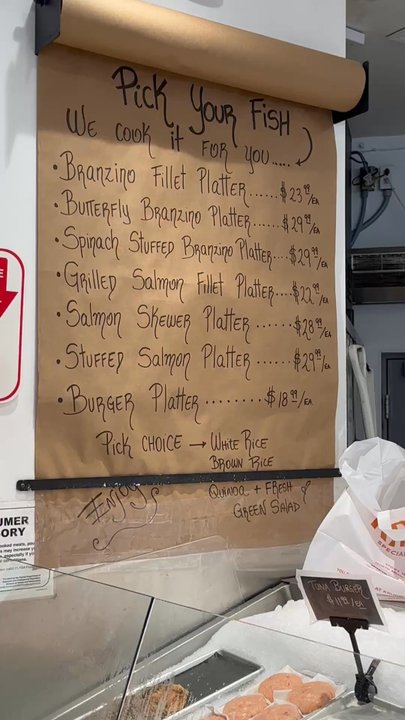 Pick Your Fish
We cook it for you.....
• Branzino Fillet Platter......$23.99/EA
• Butterfly Branzino Platter......$29.99/EA
• Spinach Stuffed Branzino Platter...$29.99/EA
• Grilled Salmon Fillet Platter....$22.99/EA
• Salmon Skewer Platter......$28.99/EA
• Stuffed Salmon Platter......$29.99/EA
• Burger Platter........$18.99/EA
Pick Choice → White Rice
Brown Rice
Quinoa + Fresh
Green Salad
Enjoy
UMER
ORY
Tuna Burger
$11.99/EA
SPECI